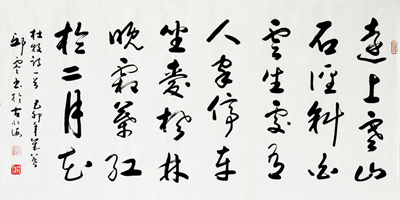 遠上寒山
石徑斜白
雲生處有
人家停車
坐愛楓林
晚霜葉紅
於二月花
杜牧詩一首 己卯年
書於古